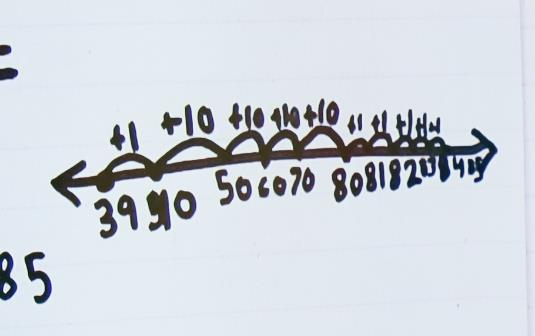 =
+1 +10 +10 +10 +10 +1 +1 +1 +1 +1
39 40 50 60 70 80 81 82 83 84 85
85